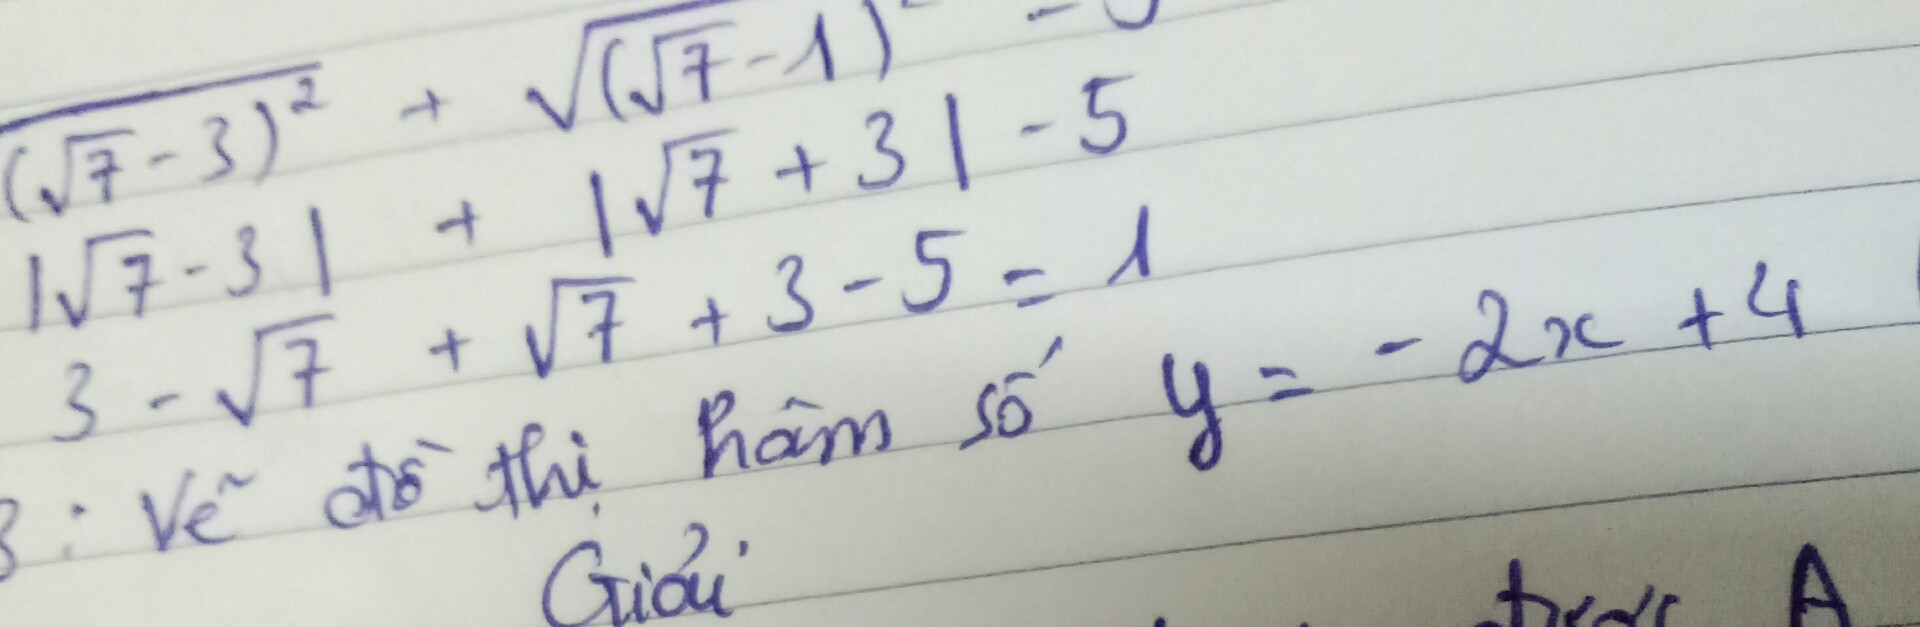 (√7 - 3)² + √(√7 - 1)²
|√7 - 3| + |√7 + 3| - 5
3 - √7 + √7 + 3 - 5 = 1
3: Vẽ đồ thị hàm số y = -2x + 4
Giải
được A